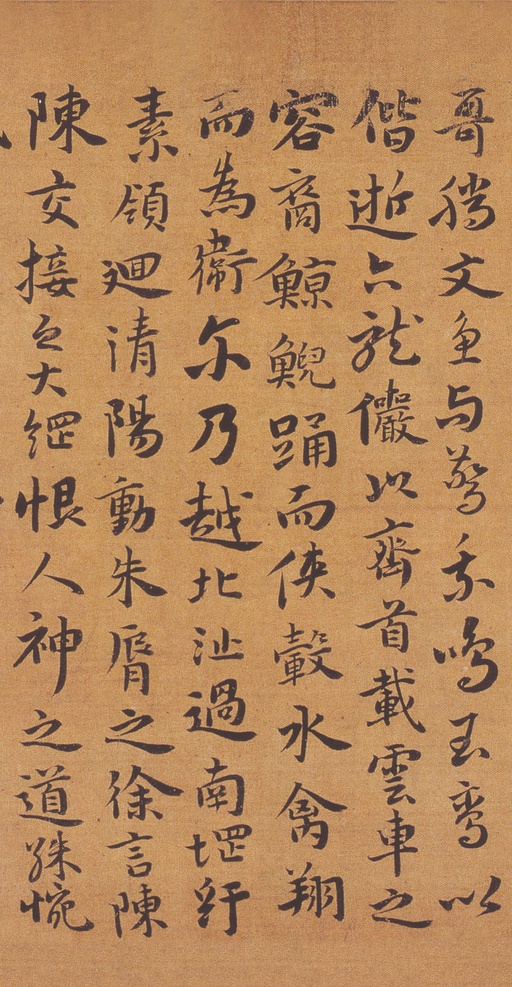 哥騰文魚与驚乘鳴玉鸞以
偕逝六龍儼以齊首載雲車之
容裔鯨鯢踊而侠轂水禽翔
而為衛尓乃越北沚過南堽紆
素領迴清陽動朱脣之徐言陳
陳交接之大綱恨人神之道殊惋